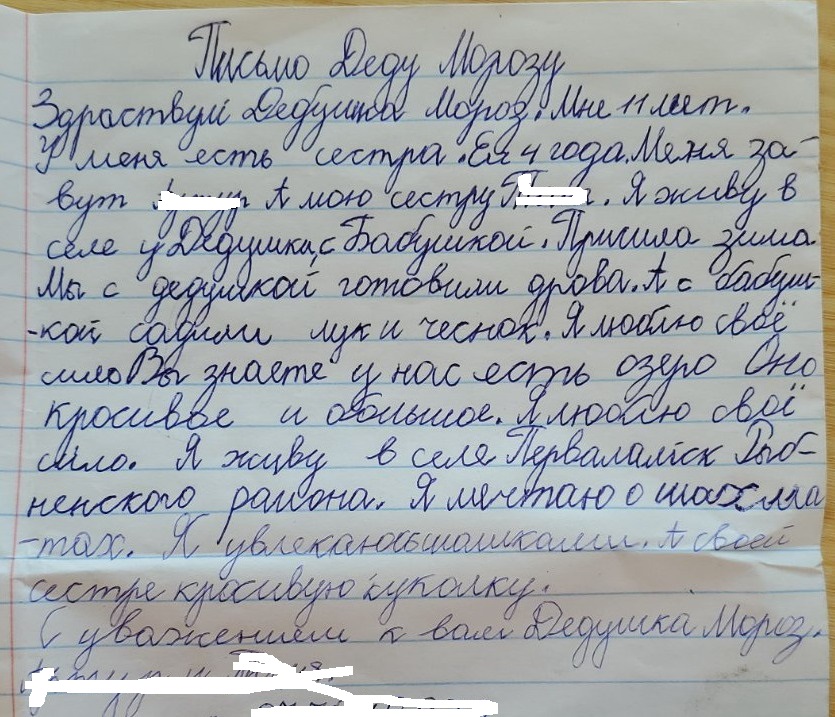 Письмо Деду Морозу
Здраствуй Дедушка Мороз. Мне 11 лет.
У меня есть сестра. Ей 4 года. Меня за-
вут А мою сестру Я живу в
селе у Дедушки, с Бабушкой. Пришла зима
Мы с дедушкой готовили дрова. А с бабуш-
-кой садили лук и чеснок. Я люблю своё
сило Вы знаете у нас есть озеро Оно
красивое и большое. Я люблю своё
сило. Я живу в селе Рыб-
ненского раиона. Я мечтаю о шахма
-тах. Я увлекаюсь шашками. А своей
сестре красивую куколку.
С уважением к вам Дедушка Мороз.